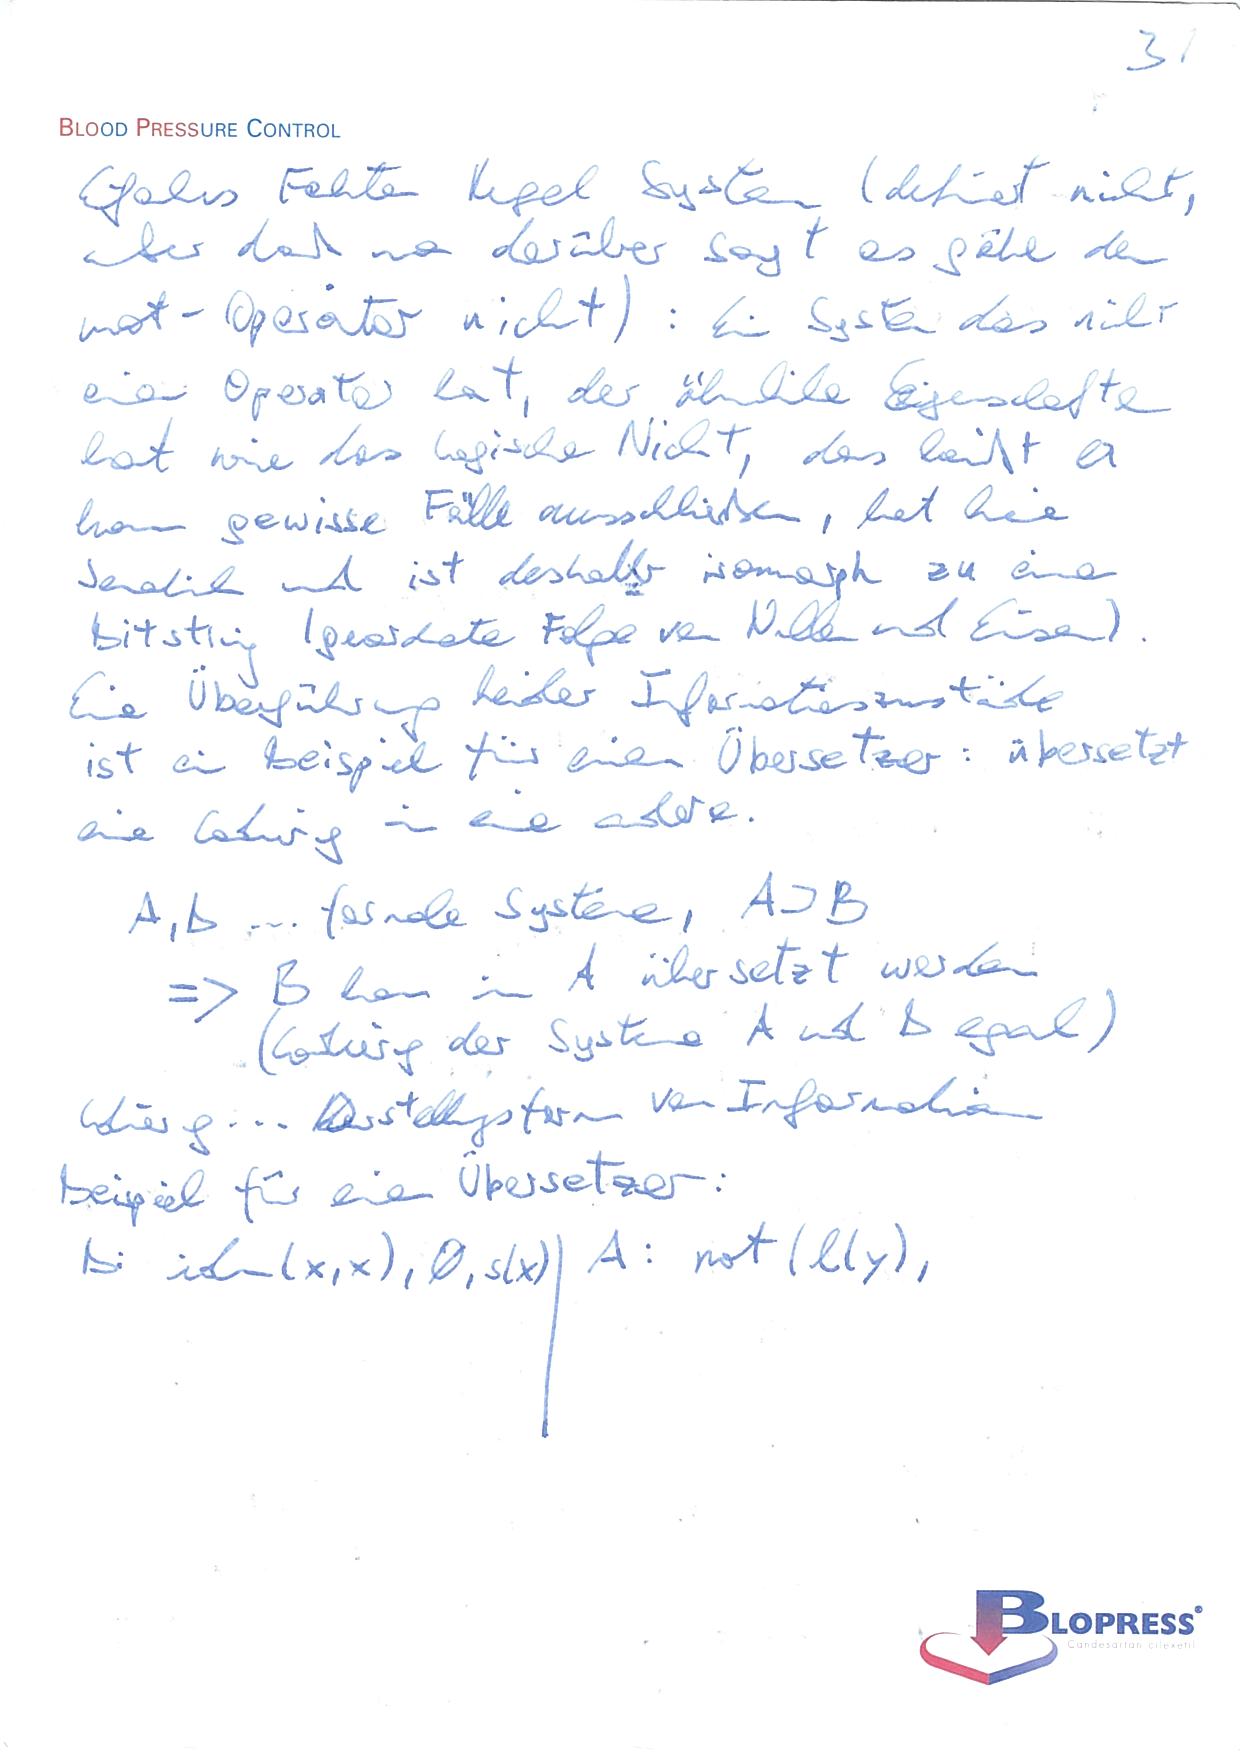 31
BLOOD PRESSURE CONTROL
Fakten Regel System (definiert nicht,
aber daß man darüber sagt es gäbe den
not-Operator nicht) : Ein System das nicht
einen Operator hat, der ähnliche Eigenschaften
hat wie das logische Nicht, das heißt er
kann gewisse Fälle ausschließen, hat keine
und ist deshalb isomorph zu einem
Bitstring (geordnete Folge von Nullen und Einsen).
Eine Überführung beider Informationszustände
ist ein Beispiel für einen Übersetzer: übersetzt
eine Codierung in eine andere.
A, B ... formale Systeme, A⊃B
=> B kann in A übersetzt werden
(Codierung der Systeme A und B egal)
Codierung ... Darstellungsform von Information
Beispiel für einen Übersetzer:
B: (x,x), 0, s(x) | A: not (l(y),
BLOPRESS®
Candesartan cilexetil